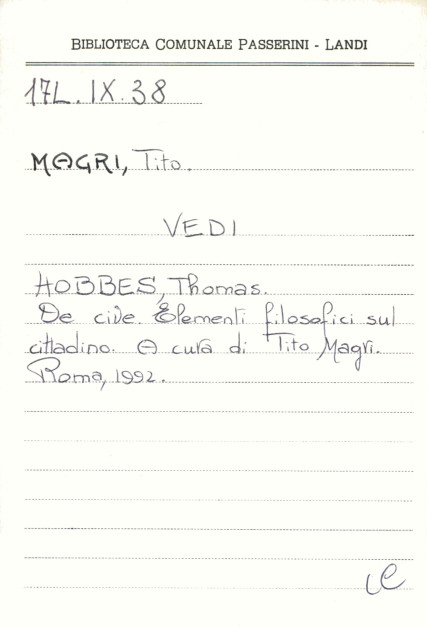 BIBLIOTECA COMUNALE PASSERINI - LANDI
17L.IX.38
MAGRI, Tito.
VEDI
HOBBES, Thomas.
De cive. Elementi filosofici sul
cittadino. A cura di Tito Magri.
Roma, 1992.